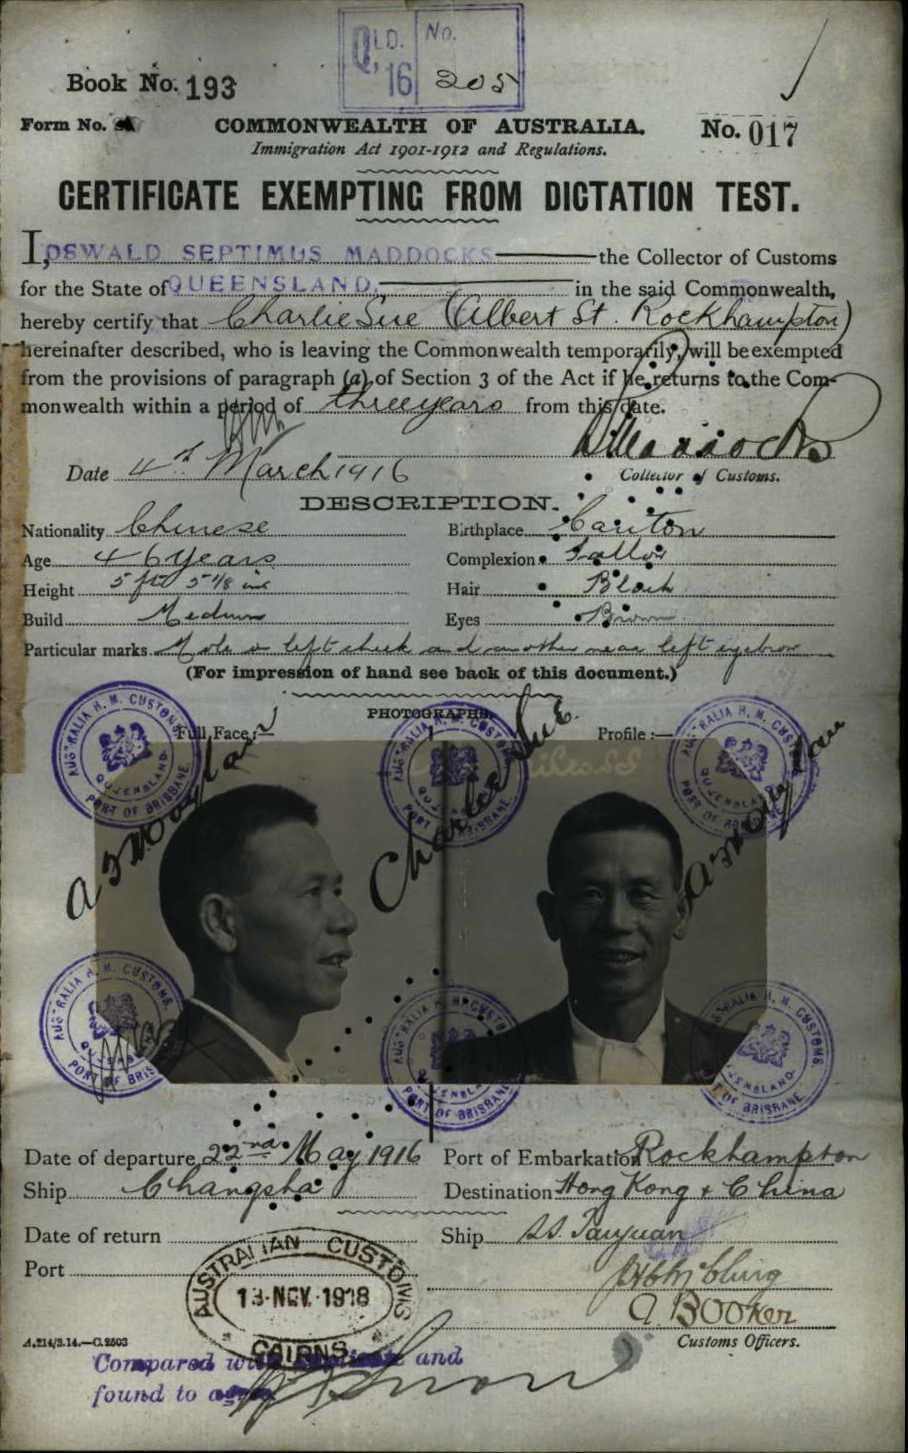 QLD. No.
16 205
Book No. 193
Form No. COMMONWEALTH OF AUSTRALIA. No. 017
Immigration Act 1901-1912 and Regulations.
CERTIFICATE EXEMPTING FROM DICTATION TEST.
I, OSWALD SEPTIMUS MADDOCKS the Collector of Customs
for the State of QUEENSLAND, in the said Commonwealth,
hereby certify that Charlie Sue (Albert St. Rockhampton)
hereinafter described, who is leaving the Commonwealth temporarily, will be exempted
from the provisions of paragraph (a) of Section 3 of the Act if he returns to the Com-
monwealth within a period of three years from this date.
Date 4th March 1916 Collector of Customs.
DESCRIPTION.
Nationality Chinese Birthplace Canton
Age 46 years Complexion Sallow
Height 5 ft 5 1/8 ins Hair Black
Build Medium Eyes Brown
Particular marks Mole on left cheek and another near left eyebrow
(For impression of hand see back of this document.)
PHOTOGRAPHS.
Full Face:— Profile:—
AUSTRALIA H. M. CUSTOMS QUEENSLAND PORT OF BRISBANE
AUSTRALIA H. M. CUSTOMS QUEENSLAND PORT OF BRISBANE
AUSTRALIA H. M. CUSTOMS QUEENSLAND PORT OF BRISBANE
Charlee Sue.
AUSTRALIA H. M. CUSTOMS. QUEENSLAND. PORT OF BRISBANE
AUSTRALIA H. M. CUSTOMS QUEENSLAND PORT OF BRISBANE
AUSTRALIA H. M. CUSTOMS. QUEENSLAND. PORT OF BRISBANE
Date of departure 22nd May 1916 Port of Embarkation Rockhampton
Ship Changsha Destination Hong Kong & China
Date of return Ship SS. Taiyuan
Port
AUSTRALIAN CUSTOMS
13 NOV. 1918
CAIRNS
A. Booker
A.214/3.14.—C.2503 Customs Officers.
Compared with and
found to agree